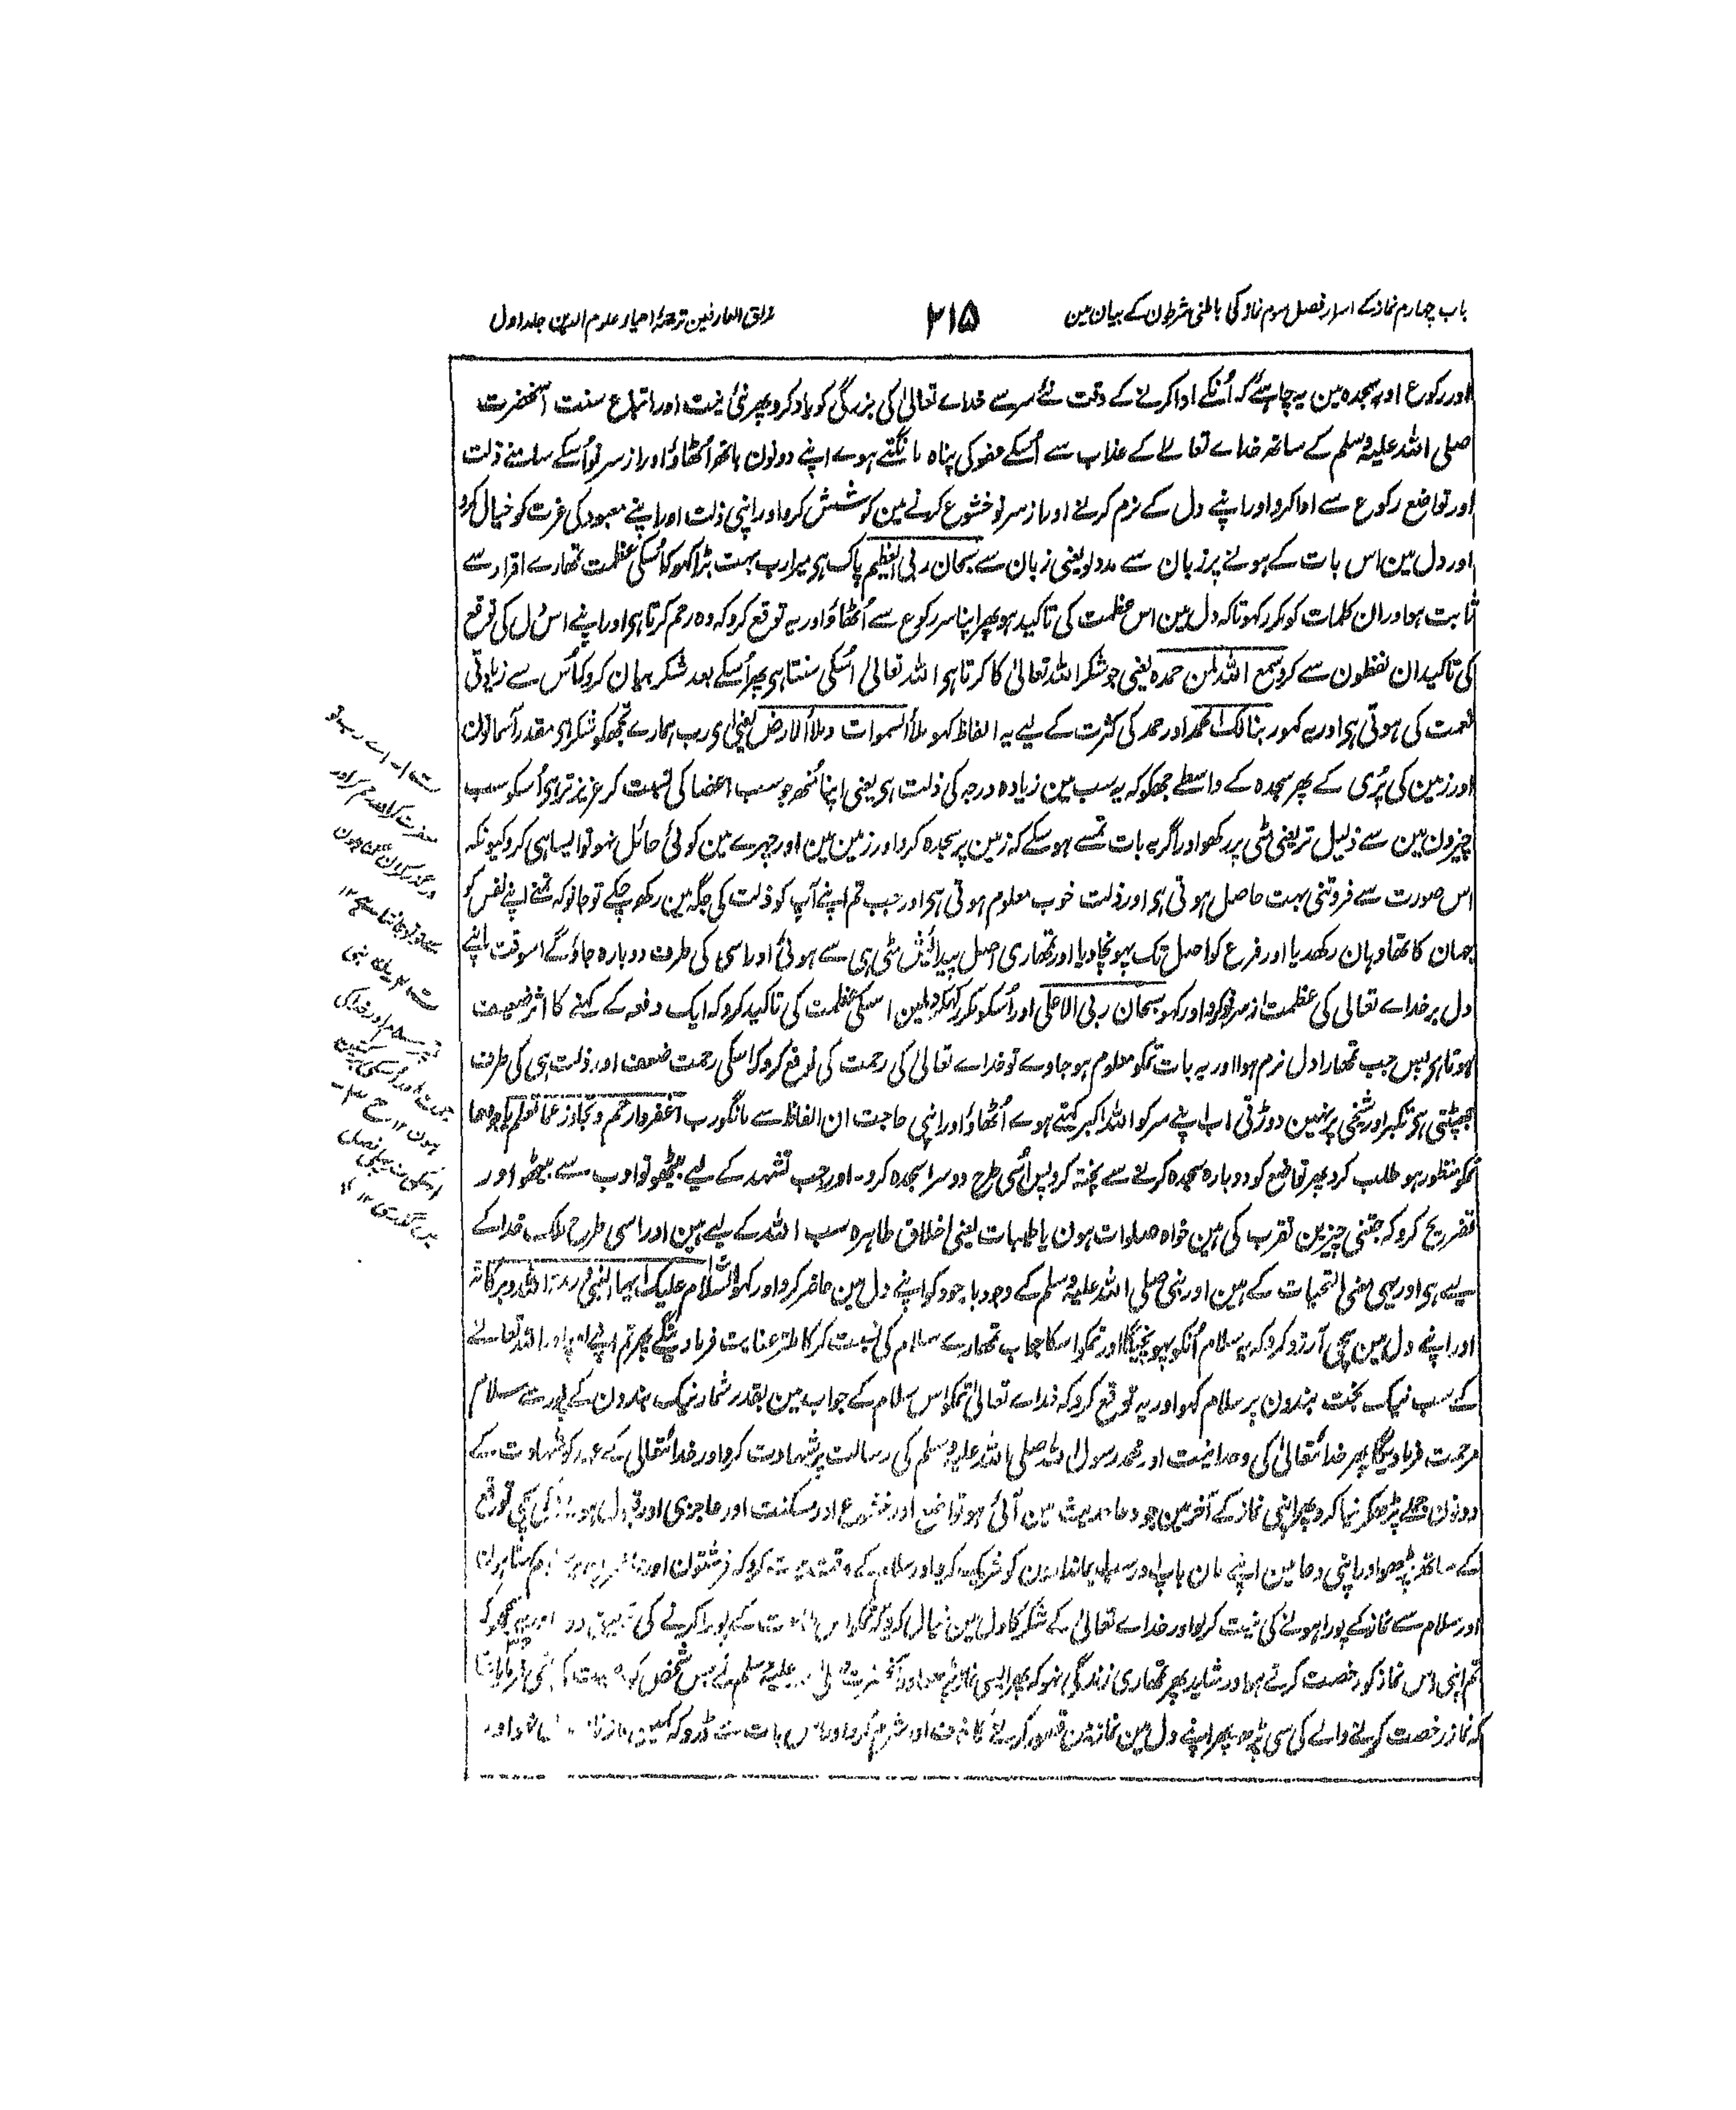 باب چہارم نماز کے اسرار فصل سوم نماز کی باطنی شرطون کے بیان مین
۲۱۵
مذاق العارفین ترجمۂ احیاء علوم الدین جلد اول
اور رکوع اور سجدہ مین یہ چاہیے کہ اُنکے ادا کرنے کے وقت نئے سر سے خداے تعالیٰ کی بزرگی کو یاد کرو پھر نئی نیت اور اتباع سنت آنحضرت
صلی اللہ علیہ وسلم کے ساتھ خداے تعالے کے عذاب سے اُسکے عفو کی پناہ مانگتے ہوے اپنے دونون ہاتھ اُٹھاؤ اور از سر نو اُسکے سامنے ذلت
اور تواضع رکوع سے ادا کرو اور اپنے دل کے نرم کرنے اور از سر نو خشوع کرنے مین کوشش کرو اور اپنی ذلت اور اپنے معبود کی عزت کو خیال کرو
اور دل مین اس بات کے ہونے پر زبان سے مدد لو یعنی زبان سے سبحان ربی العظیم پاک ہی میرا رب بہت بڑا کہو کہ اُسکی عظمت تمھارے اقرار سے
ثابت ہو اور ان کلمات کو مکرر کہو تاکہ دل مین اس عظمت کی تاکید ہو پھر اپنا سر رکوع سے اُٹھاؤ اور یہ توقع کرو کہ وہ رحم کرتا ہی اور اپنے اس دل کی توقع
کی تاکید ان لفظون سے کرو سمع اللہ لمن حمدہ یعنی جو شکر اللہ تعالیٰ کا کرتا ہی اللہ تعالیٰ اُسکی سنتا ہی پھر اُسکے بعد شکر بیان کرو کہ اُس سے زیادتی
نعمت کی ہوتی ہی اور یہ کہو ربنا لک الحمد اور حمد کی کثرت کے لیے یہ الفاظ کہو ملأ السموات وملأ الارض یعنی ای رب ہمارے تجھکو شکر ہی مقدر آسمانون
اور زمین کی پُری کے پھر سجدہ کے واسطے جھکو کہ یہ سب مین زیادہ درجہ کی ذلت ہی یعنی اپنا مُنھ جو سب اعضا کی نسبت کر عزیز تر ہی اُسکو سب
چیزون مین سے ذلیل تر یعنی مٹی پر رکھو اور اگر یہ بات تمسے ہو سکے کہ زمین پر سجدہ کرو اور زمین مین اور چہرے مین کوئی حائل نہو تو ایسا ہی کرو کیونکہ
اس صورت سے فروتنی بہت حاصل ہوتی ہی اور ذلت خوب معلوم ہوتی ہی اور جب تم اپنے آپ کو ذلت کی جگہ مین رکھ چکے تو جانو کہ تمنے اپنے نفس کو
جہان کا تھا وہان رکھدیا اور فرع کو اصل تک پہونچا دیا اور تمھاری اصل پیدائش مٹی ہی سے ہوئی اور اسی کی طرف دوبارہ جاؤگے اسوقت اپنے
دل پر خداے تعالی کی عظمت از سر نو کرو اور کہو سبحان ربی الاعلی اور اُسکو مکرر کہکر دلمین اسکی عظمت کی تاکید کرو کہ ایک دفعہ کے کہنے کا اثر ضعیف
ہوتا ہی پس جب تمھارا دل نرم ہو اور یہ بات تمکو معلوم ہو جاوے تو خداے تعالیٰ کی رحمت کی توقع کرو کہ اسکی رحمت ضعف اور ذلت ہی کی طرف
جھپٹتی ہی تکبر اور شیخی پر نہین دوڑتی اب اپنے سر کو اللہ اکبر کہتے ہوے اُٹھاؤ اور اپنی حاجت ان الفاظ سے مانگو رب اغفر وارحم وتجاوز عما تعلم یا جو دعا
تمکو منظور ہو طلب کرو پھر تواضع کو دوبارہ سجدہ کرنے سے پختہ کرو پس اُسی طرح دوسرا سجدہ کرو۔ اور جب تشہد کے لیے بیٹھو تو ادب سے بیٹھو اور
تصریح کرو کہ جتنی چیزین تقرب کی ہین خواہ صلوات ہون یا طیبات یعنی اخلاق طاہرہ سب اللہ کے لیے ہین اور اسی طرح ملک خدا کے
لیے ہی اور یہی معنی التحیات کے ہین اور نبی صلی اللہ علیہ وسلم کے وجود باجود کو اپنے دل مین حاضر کرو اور کہو السلام علیک ایہا النبی ورحمۃ اللہ وبرکاتہ
اور اپنے دل مین سچی آرزو کرو کہ یہ سلام اُنکو پہونچیگا اور تمکو اسکا جواب تمھارے سلام کی نسبت کر کامل تر عنایت فرماوینگے پھر تم اپنے اوپر اور اللہ تعالے
کے سب نیک بخت بندون پر سلام کہو اور یہ توقع کرو کہ خداے تعالیٰ تمکو اس سلام کے جواب مین بقدر شمار نیک بندون کے پورے سلام
مرحمت فرماویگا پھر خدا تعالیٰ کی وحدانیت اور محمد رسول اللہ صلی اللہ علیہ وسلم کی رسالت پر شہادت کرو اور خدا تعالی کے عہد کو شہادت کے
دونون جملے پڑھکر نیا کرو پھر اپنی نماز کے آخر مین جو دعا حدیث مین آئی ہو تواضع اور خشوع اور مسکنت اور عاجزی اور قبول ہونے کی سچی توقع
کے ساتھ پڑھو اور اپنی دعا مین اپنے مان باپ اور سب ایماندارون کو شریک کرو اور سلام کے وقت نیت کرو کہ فرشتون اور
اور سلام سے نماز کے پورا ہونے کی نیت کرو اور خداے تعالیٰ کے شکر کا دل مین خیال کرو کہ تمکو اس کے پورا کرنے کی توفیق دی اور یہ سمجھو کہ
تم اپنی اس نماز کو رخصت کرتے ہو اور شاید پھر تمھاری زندگی نہو کہ پھر ایسی نماز پڑھو اور آنحضرت صلی اللہ علیہ وسلم نے جس شخص کو
کہ نماز رخصت کرنے والے کی سی پڑھ پھر اپنے دل مین نماز مین قصور کرنے کا خوف اور شرم کرو اور اس بات سے ڈرو کہ کہین نماز